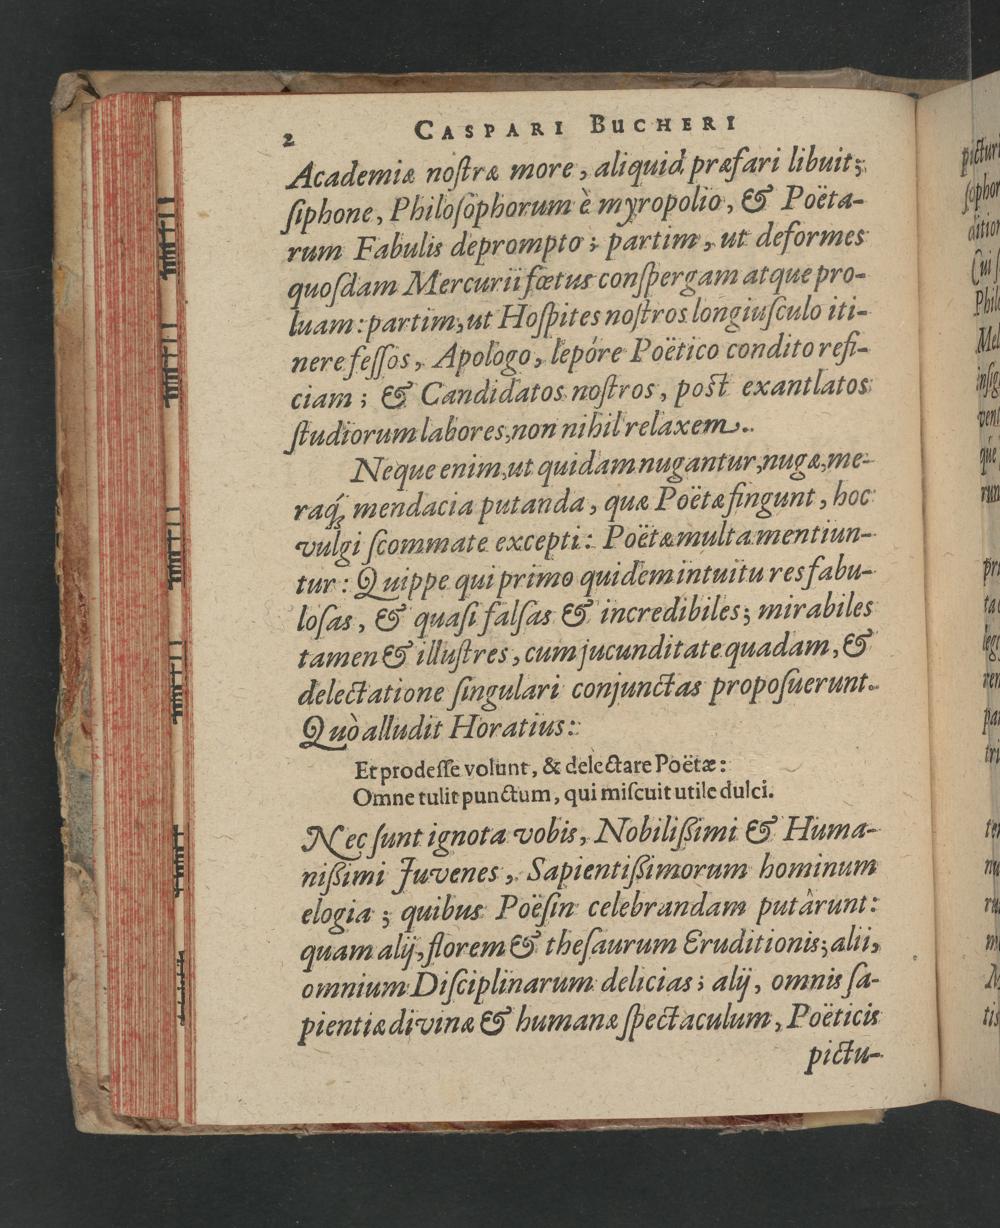 2 CASPARI BUCHERI
Academiæ noſtræ more, aliquid præfari libuit;
ſiphone, Philoſophorum è myropolio, & Poëta-
rum Fabulis deprompto; partim, ut deformes
quoſdam Mercurii fœtus conſpergam atque pro-
luam: partim, ut Hoſpites noſtros longiuſculo iti-
nere feſſos, Apologo, lepóre Poëtico condito refi-
ciam; & Candidatos noſtros, poſt exantlatos
ſtudiorum labores, non nihil relaxem.
Neque enim, ut quidam nugantur, nugæ, me-
raq́; mendacia putanda, quæ Poëtæ fingunt, hoc
vulgi ſcommate excepti: Poëtæ multa mentiun-
tur: Quippe qui primo quidem intuitu res fabu-
loſas, & quaſi falſas & incredibiles; mirabiles
tamen & illuſtres, cum jucunditate quadam, &
delectatione ſingulari conjunctas propoſuerunt.
Quò alludit Horatius:
Et prodeſſe volunt, & delectare Poëtæ:
Omne tulit punctum, qui miſcuit utile dulci.
Nec ſunt ignota vobis, Nobilißimi & Huma-
nißimi Juvenes, Sapientißimorum hominum
elogia; quibus Poëſin celebrandam putârunt:
quam alij, florem & theſaurum Eruditionis; alii,
omnium Diſciplinarum delicias; alij, omnis ſa-
pientiæ divinæ & humanæ ſpectaculum, Poëticis
pictu-